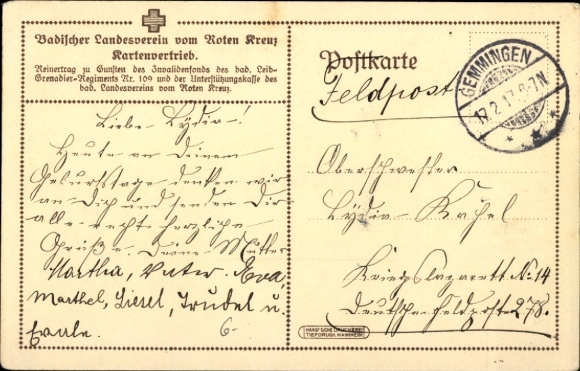 Badischer Landesverein vom Roten Kreuz
Kartenvertrieb.
Reinertrag zu Gunsten des Invalidenfonds des bad. Leib-
Grenadier-Regiments Nr. 109 und der Unterstützungskasse des
bad. Landesvereins vom Roten Kreuz.
Liebe Lydia!
Heute an Deinem
Geburtstage denken wir
an Dich und senden Dir
alle recht herzliche
Grüße. Deine Mutter
Martha, Vater. Eva,
Marthel, Liesel, Trudel u.
Paule.
6-
Postkarte
Feldpost
GEMMINGEN
17.2.17. 6-7N
Oberschwester
Lydia
Kriegslazarett No 14
Deutsche Feldpost 278.
HAAS'SCHE DRUCKEREI
TIEFDRUCK MANNHEIM